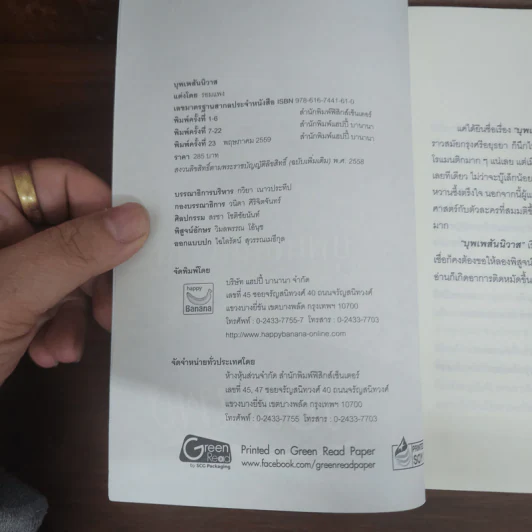 บุพเพสันนิวาส
แต่งโดย รอมแพง
เลขมาตรฐานสากลประจำหนังสือ ISBN 978-616-7441-61-0
พิมพ์ครั้งที่ 1-6 สำนักพิมพ์ฟิสิกส์เซ็นเตอร์
พิมพ์ครั้งที่ 7-22 สำนักพิมพ์แฮปปี้ บานานา
พิมพ์ครั้งที่ 23 พฤษภาคม 2559 สำนักพิมพ์แฮปปี้ บานานา
ราคา 285 บาท
สงวนลิขสิทธิ์ตามพระราชบัญญัติลิขสิทธิ์ (ฉบับเพิ่มเติม) พ.ศ. 2558
บรรณาธิการบริหาร กวิยา เนาวประทีป
กองบรรณาธิการ วนิดา ศิริจิตจันทร์
ศิลปกรรม ลงชา โชติชัยนันท์
พิสูจน์อักษร วิมลพรรณ ไข้นุช
ออกแบบปก ไอไลรัตน์ สุวรรณเมธีกุล
จัดพิมพ์โดย
happy
Banana
บริษัท แฮปปี้ บานานา จำกัด
เลขที่ 45 ซอยจรัญสนิทวงศ์ 40 ถนนจรัญสนิทวงศ์
แขวงบางยี่ขัน เขตบางพลัด กรุงเทพฯ 10700
โทรศัพท์ : 0-2433-7755-7 โทรสาร : 0-2433-7703
http://www.happybanana-online.com
จัดจำหน่ายทั่วประเทศโดย
ห้างหุ้นส่วนจำกัด สำนักพิมพ์ฟิสิกส์เซ็นเตอร์
เลขที่ 45, 47 ซอยจรัญสนิทวงศ์ 40 ถนนจรัญสนิทวงศ์
แขวงบางยี่ขัน เขตบางพลัด กรุงเทพฯ 10700
โทรศัพท์ : 0-2433-7755 โทรสาร : 0-2433-7703
Green
Read
By SCG Packaging
Printed on Green Read Paper
www.facebook.com/greenreadpaper
แต่ได้ยินชื่อเรื่อง "บุพเ
ราวสมัยกรุงศรีอยุธยา ก็นึกไ
โรแมนติกมาก ๆ แน่เลย แต่เมื
เลยทีเดียว ไม่ว่าจะบู๊เล็กน้อย
หวานซึ้งตรึงใจ นอกจากนี้ผู้แ
ศาสตร์กับตัวละครที่สมมติขึ้
มาก
"บุพเพสันนิวาส" เ
เชื่อก็คงต้องขอให้ลองพิสูจน์
อ่านก็เกิดอาการติดหนึบขึ้น